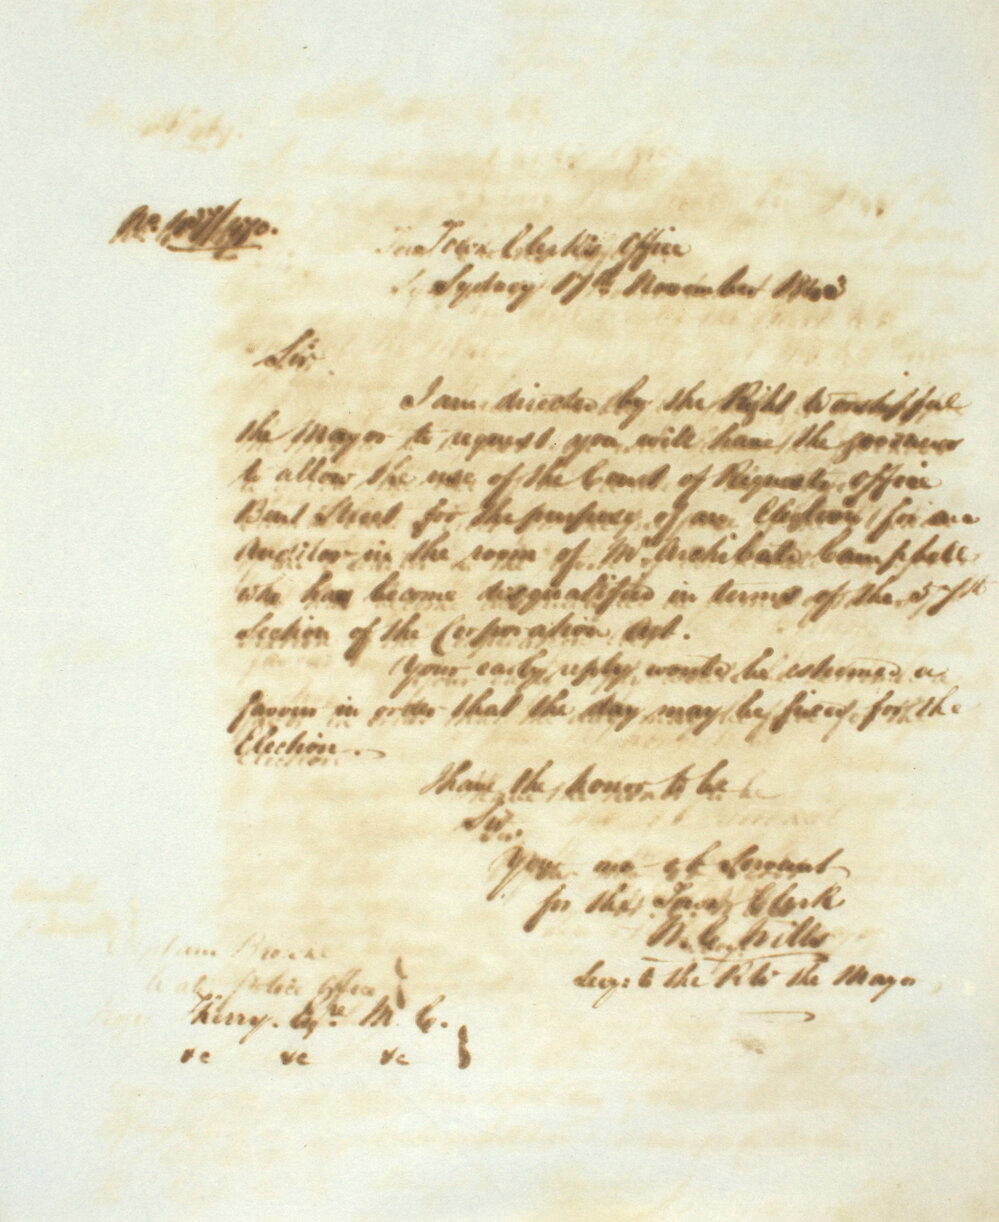 Town Clerk's Office
Sydney 17th November 1843
Sir,
I am directed by the Right Worshipful
the Mayor to request you will have the goodness
to allow the use of the Court of Requests Office
Bent Street for the purpose of an Election for an
Auditor in the room of Mr Archibald Campbell
who has become disqualified in terms of the 57th
Section of the Corporation Act.
Your early reply would be esteemed a
favour in order that the day may be fixed for the
Election.
I have the honor to be
Sir
Your mo ob Servant
for the Town Clerk
Secy: to the Rt W the Mayor
Therry. Esqre M. C.
&c &c &c